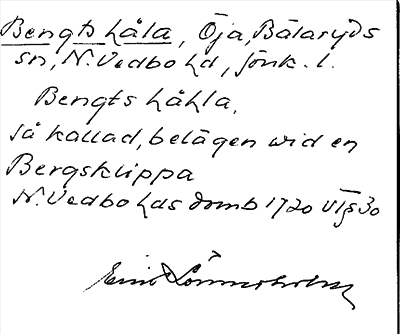 Bengts håla, Öja, Bälaryds
sn, N. Vedbo hd, Jönk. l.
Bengts håhla,
så kallad, belägen wid en
Bergsklippa
N. Vedbo hds domb 1720 VT § 30
Emil